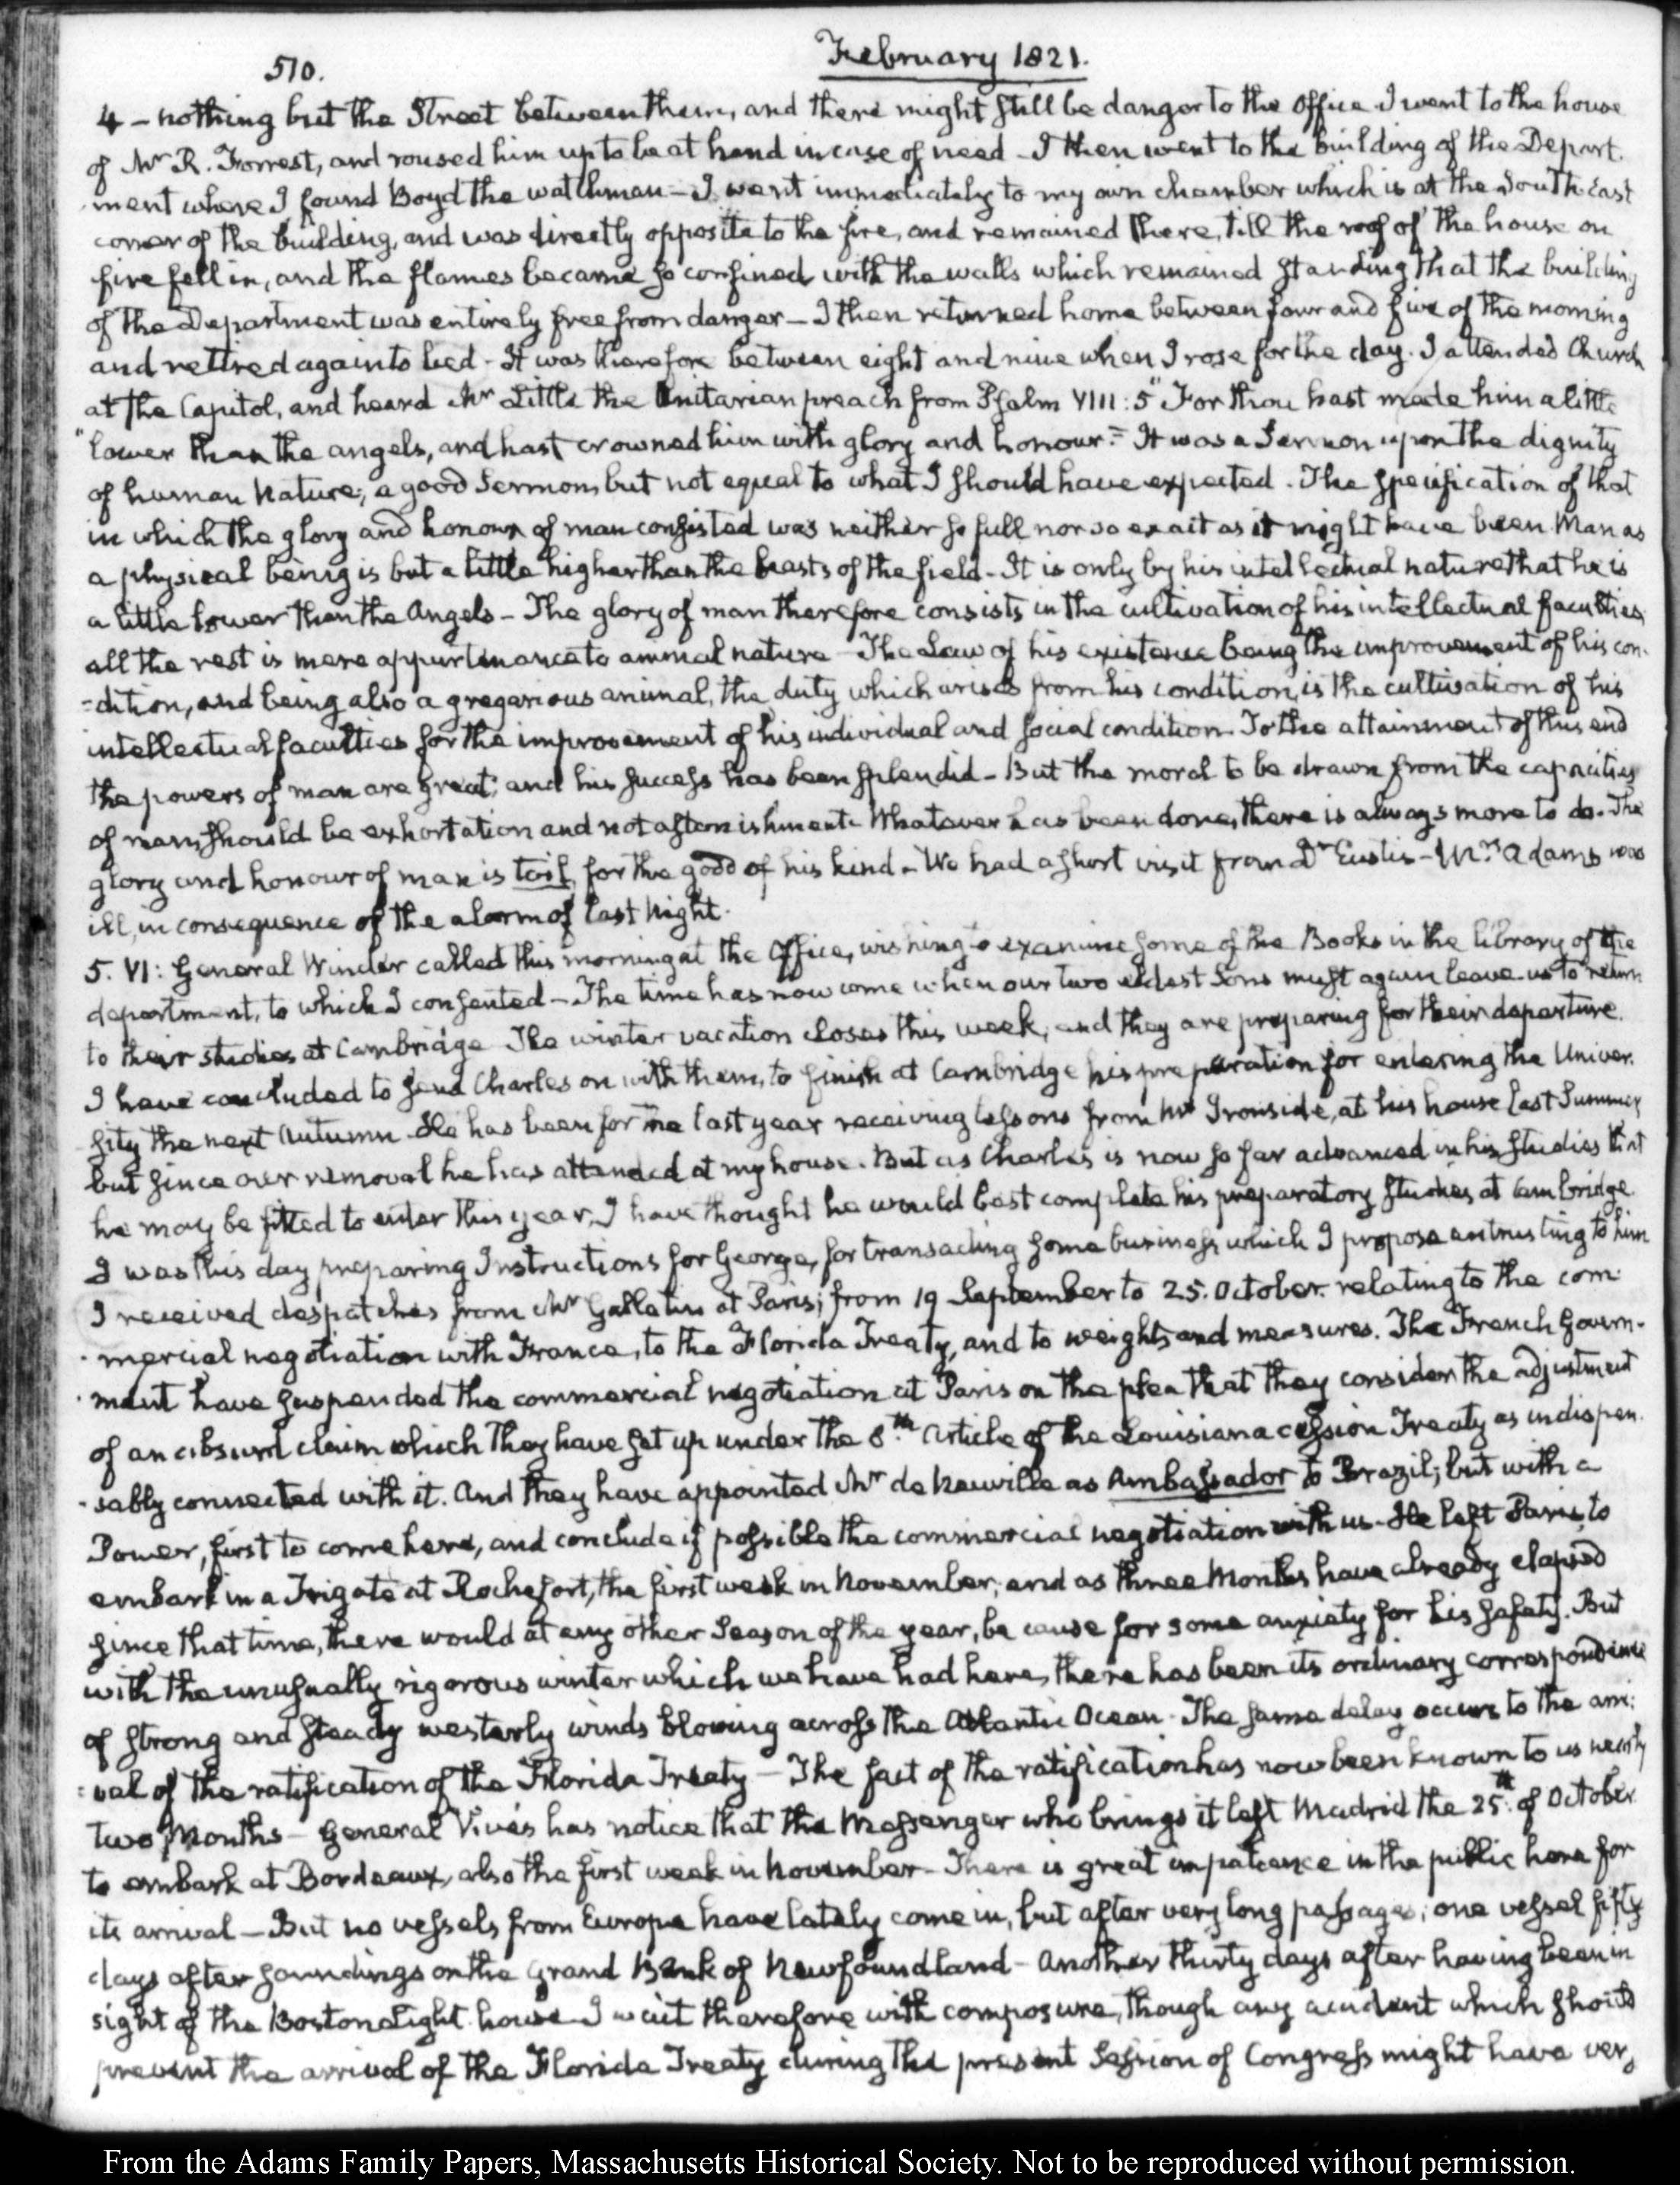 510.
February 1821.
4 – nothing but the Street between them, and there might still be danger to the Office I went to the house
of Mr R. Forrest, and roused him up to be at hand in case of need – I then went to the building of the Depart.
ment where I found Boyd the watchman – I went immediately to my own chamber which is at the South East
corner of the building, and was directly opposite to the fire, and remained there, till the roof of the house on
fire fell in, and the flames became so confined with the walls which remained standing that the building
of the Department was entirely free from danger – I then returned home between four and five of the morning
and retired again to bed – It was therefore between eight and nine when I rose for the day. I attended Church
at the Capitol, and heard Mr Little the Unitarian preach from Psalm VIII: 5 "For thou hast made him a little
"lower than the angels, and hast crowned him with glory and honour." It was a Sermon upon the dignity
of human Nature; a good Sermon, but not equal to what I should have expected. The specification of that
in which the glory and honour of man consisted was neither so full nor so exact as it might have been Man as
a physical being is but a little higher than the beasts of the field – It is only by his intellectual nature that he is
a little lower than the Angels – The glory of man therefore consists in the cultivation of his intellectual faculties
all the rest is mere appurtenance to animal nature – The Law of his existence being the improvement of his con-
-dition, and being also a gregarious animal, the duty which arises from his condition, is the cultivation of his
intellectual faculties for the improvement of his individual and social condition. To the attainment of this end
the powers of man are great; and his success has been splendid – But the moral to be drawn from the capacities
of man, should be exhortation and not astonishment. Whatever has been done, there is always more to do. The
glory and honour of man is toil, for the good of his kind – We had a short visit from Dr Eustis – Mrs Adams was
ill, in consequence of the alarm of last Night.
5. VI: General Winder called this morning at the Office, wishing to examine some of the Books in the library of the
department, to which I consented – The time has now come when our two eldest Sons must again leave us to return
to their studies at Cambridge The winter vacation closes this week, and they are preparing for their departure.
I have concluded to send Charles on with them, to finish at Cambridge his preparation for entering the Univer.
sity the next Autumn. He has been for the last year receiving lessons from Mr Ironside, at his house last Summer
but since our removal he has attended at my house. But as Charles is now so far advanced in his studies that
he may be fitted to enter this year, I have thought he would best complete his preparatory studies at Cambridge.
I was this day preparing Instructions for George, for transacting some business which I propose entrusting to him
I received despatches from Mr Gallatin at Paris; from 19 September to 25. October. relating to the com-
-mercial negotiation with France, to the Florida Treaty, and to weights and measures. The French Govern-
-ment have suspended the commercial negotiation at Paris on the plea that they consider the adjustment
of an absurd claim which they have set up under the 8th Article of the Louisiana cession Treaty as indispen.
-sably connected with it. And they have appointed Mr de Neuville as Ambassador to Brazil; but with a
Power, first to come here, and conclude if possible the commercial negotiation with us – He left Paris, to
embark in a Frigate at Rochefort, the first week in November; and as three Months have already elapsed
since that time, there would at any other Season of the year, be cause for some anxiety for his safety. But
with the unusually rigorous winter which we have had here, there has been its ordinary correspondence
of strong and steady westerly winds blowing across the Atlantic Ocean. The same delay occurs to the arri-
-val of the ratification of the Florida Treaty – The fact of the ratification has now been known to us nearly
two Months – General Vivés has notice that the Messenger who brings it left Madrid the 25th of October
to embark at Bordeaux, also the first week in November – There is great impatience in the public here for
its arrival – But no vessels from Europe have lately come in, but after very long passages; one vessel fifty
days after soundings on the Grand Bank of Newfoundland – Another thirty days after having been in
sight of the Boston Light house I wait therefore with composure, though any accident which should
prevent the arrival of the Florida Treaty during the present Session of Congress might have very
From the Adams Family Papers, Massachusetts Historical Society. Not to be reproduced without permission.